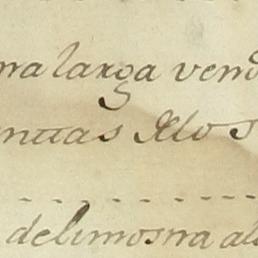 ma larga vend
nuas Xlos
delimosna al